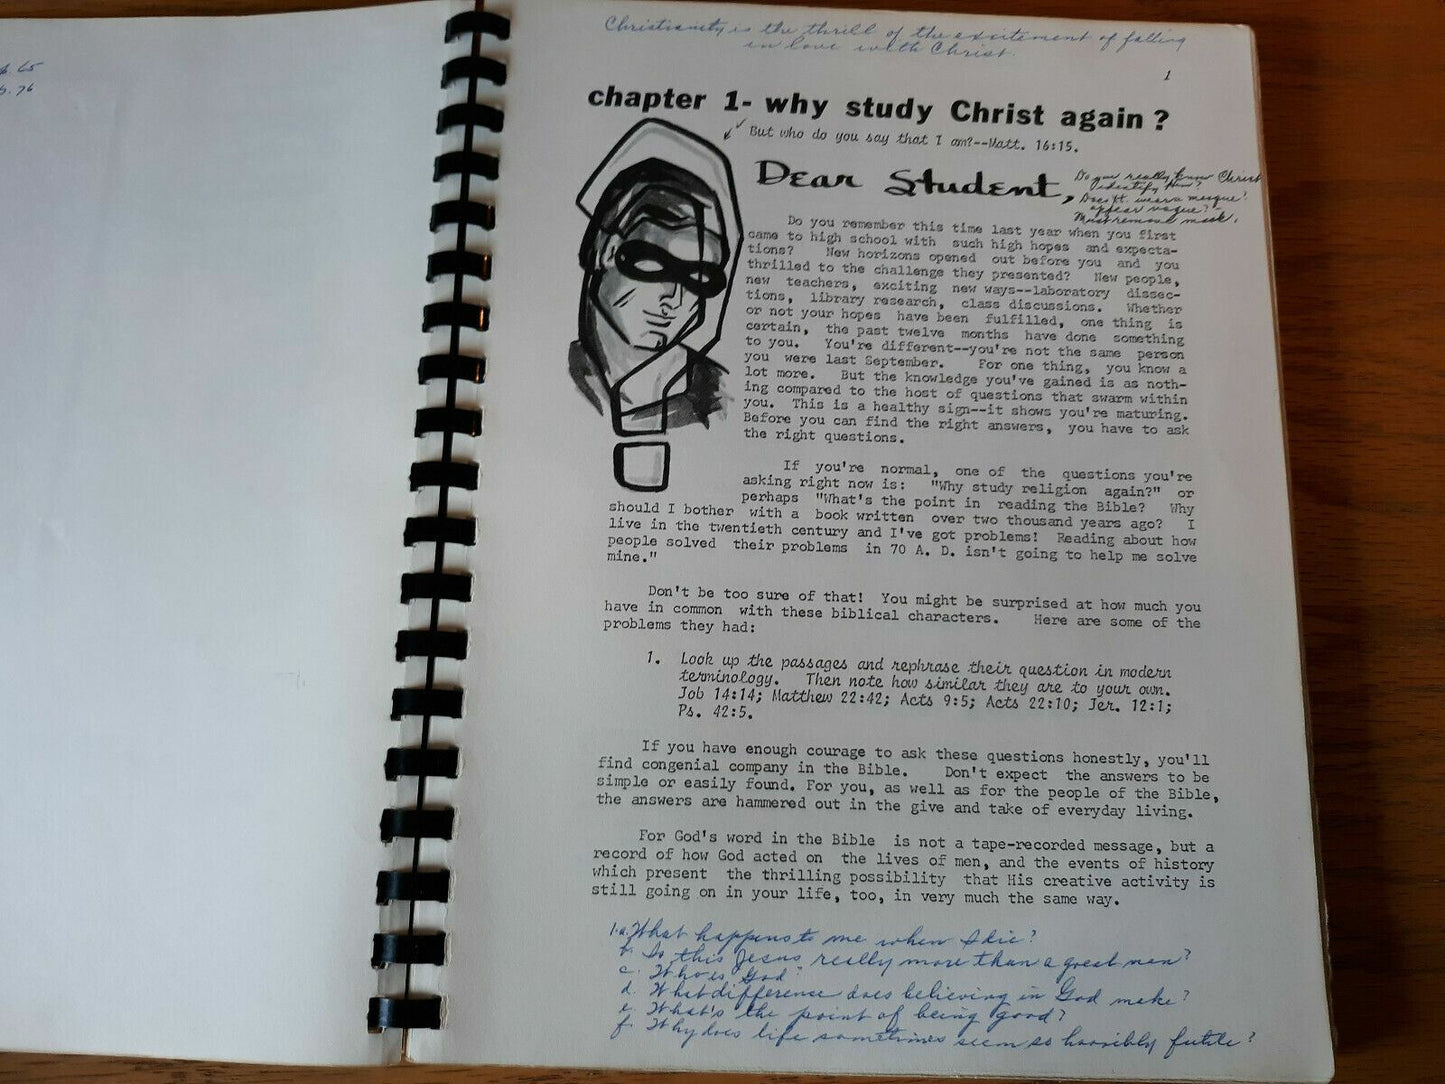 65
76
Christianity is the thrill of the excitement of falling
in love with Christ.
1
chapter 1- why study Christ again?
But who do you say that I am?--Matt. 16:15.
Dear Student,
Do you really know Christ
identify Him?
Does it wear a masque?
appear vague?
Must remove mask.
Do you remember this time last year when you first
came to high school with such high hopes and expecta-
tions? New horizons opened out before you and you
thrilled to the challenge they presented? New people,
new teachers, exciting new ways--laboratory dissec-
tions, library research, class discussions. Whether
or not your hopes have been fulfilled, one thing is
certain, the past twelve months have done something
to you. You're different--you're not the same person
you were last September. For one thing, you know a
lot more. But the knowledge you've gained is as noth-
ing compared to the host of questions that swarm within
you. This is a healthy sign--it shows you're maturing.
Before you can find the right answers, you have to ask
the right questions.
If you're normal, one of the questions you're
asking right now is: "Why study religion again?" or
perhaps "What's the point in reading the Bible? Why
should I bother with a book written over two thousand years ago? I
live in the twentieth century and I've got problems! Reading about how
people solved their problems in 70 A. D. isn't going to help me solve
mine."
Don't be too sure of that! You might be surprised at how much you
have in common with these biblical characters. Here are some of the
problems they had:
1. Look up the passages and rephrase their question in modern
terminology. Then note how similar they are to your own.
Job 14:14; Matthew 22:42; Acts 9:5; Acts 22:10; Jer. 12:1;
Ps. 42:5.
If you have enough courage to ask these questions honestly, you'll
find congenial company in the Bible. Don't expect the answers to be
simple or easily found. For you, as well as for the people of the Bible,
the answers are hammered out in the give and take of everyday living.
For God's word in the Bible is not a tape-recorded message, but a
record of how God acted on the lives of men, and the events of history
which present the thrilling possibility that His creative activity is
still going on in your life, too, in very much the same way.
1.a. What happens to me when I die?
b. Is this Jesus really more than a great man?
c. Who is "God"
d. What difference does believing in God make?
e. What's the point of being good?
f. Why does life sometimes seem so horribly futile?